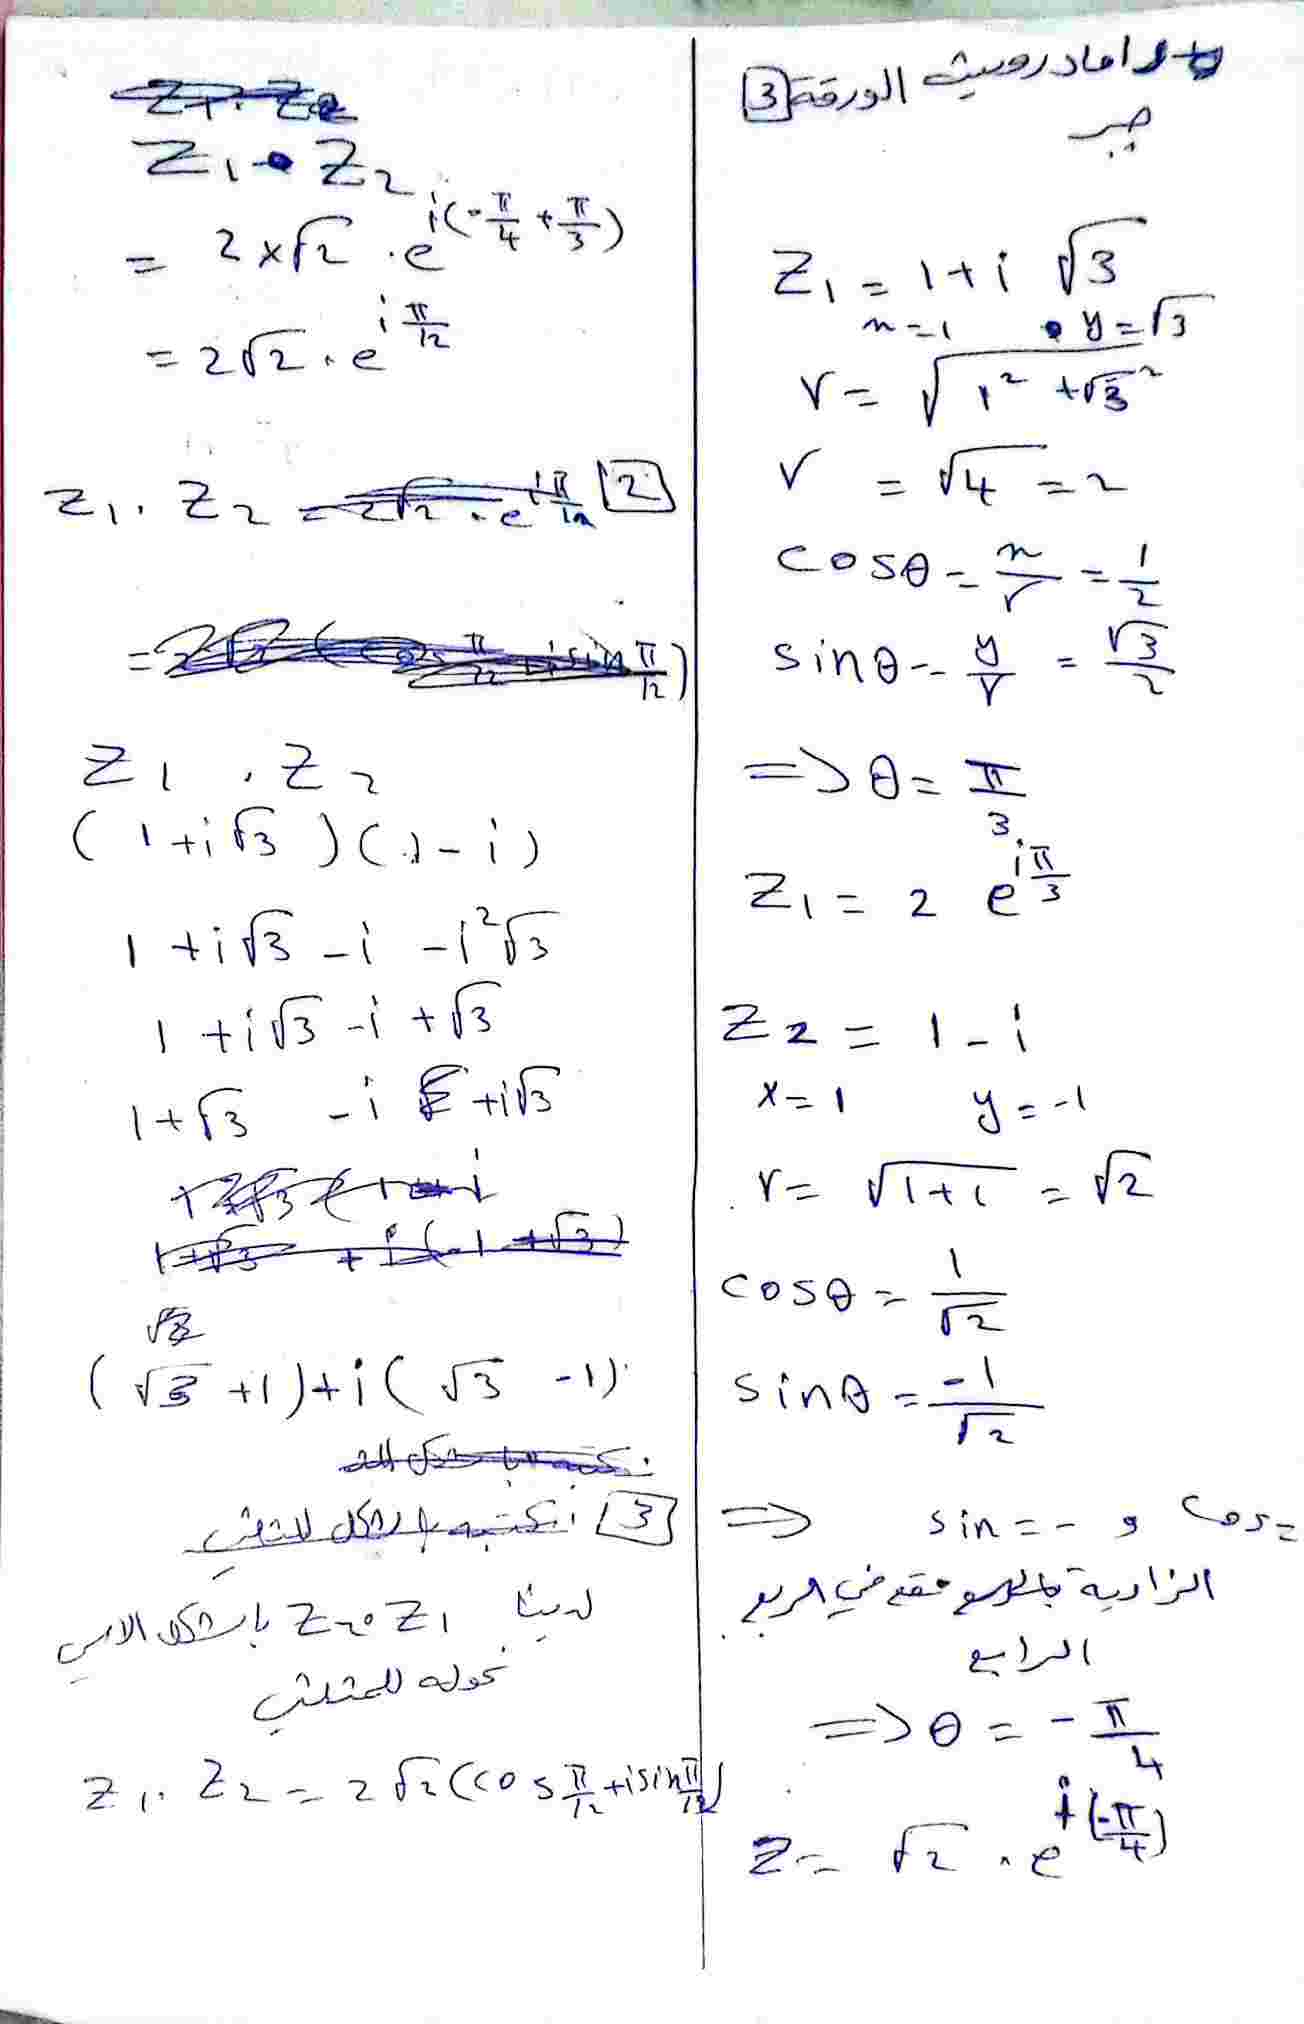 الورقة [3]
جبر
Z₁ = 1 + i √3
x = 1 y = √3
r = √(1² + √3²)
r = √4 = 2
cosθ = x/r = 1/2
sinθ = y/r = √3/2
=> θ = π/3
Z₁ = 2 e^(iπ/3)
Z₂ = 1 - i
x = 1 y = -1
r = √(1+1) = √2
cosθ = 1/√2
sinθ = -1/√2
=> sin = - و cos =
الزاوية تقع في الربع
الرابع
=> θ = -π/4
Z = √2 . e^(i(-π/4))
Z₁ . Z₂
Z₁ . Z₂
= 2 × √2 . e^(i(-π/4 + π/3))
= 2√2 . e^(i π/12)
[2] Z₁ . Z₂ = 2√2 . e^(iπ/12)
= 2√2 (cos π/12 + i sin π/12)
Z₁ . Z₂
(1 + i√3)(1 - i)
1 + i√3 - i - i²√3
1 + i√3 - i + √3
1 + √3 - i + i√3
1 + √3 + i(-1 + √3)
(√3 + 1) + i(√3 - 1)
[3] نكتبه بالشكل المثلثي
لدينا Z₁ . Z₂ بالشكل الاسي
نحوله للمثلثي
Z₁ . Z₂ = 2√2 (cos π/12 + i sin π/12)